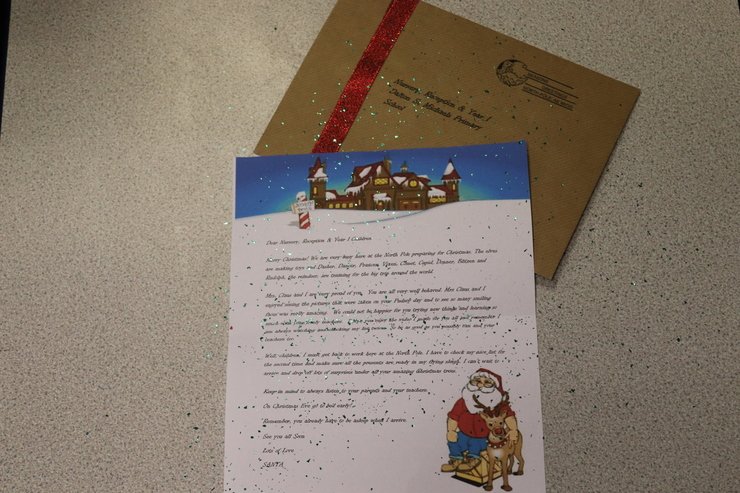 Nursery, Reception & Year 1
Dalton St Michaels Primary
School
Dear Nursery, Reception & Year 1 Children
Merry Christmas! We are very busy here at the North Pole preparing for Christmas. The elves
are making toys and Dasher, Dancer, Prancer, Vixen, Comet, Cupid, Donner, Blitzen and
Rudolph, the reindeer, are training for the big trip around the world.
Mrs. Claus and I are very proud of you. You are all very well behaved. Mrs Claus and I
enjoyed seeing the pictures that were taken on your Pudsey day and to see so many smiling
faces was really amazing. We could not be happier for you trying new things and learning so
much with your lovely teachers. you saw the video I made for you all and remember I
am always watching and checking my list twice. So be as good as you possibly can and your
teachers too.
Well, children, I must get back to work here at the North Pole. I have to check my nice list for
the second time and make sure all the presents are ready in my flying sleigh. I can't wait to
arrive and drop off lots of surprises under all your amazing Christmas trees.
Keep in mind to always listen to your parents and your teachers.
On Christmas Eve go to bed early!
Remember, you already have to be asleep when I arrive.
See you all Soon
Lots of Love
SANTA